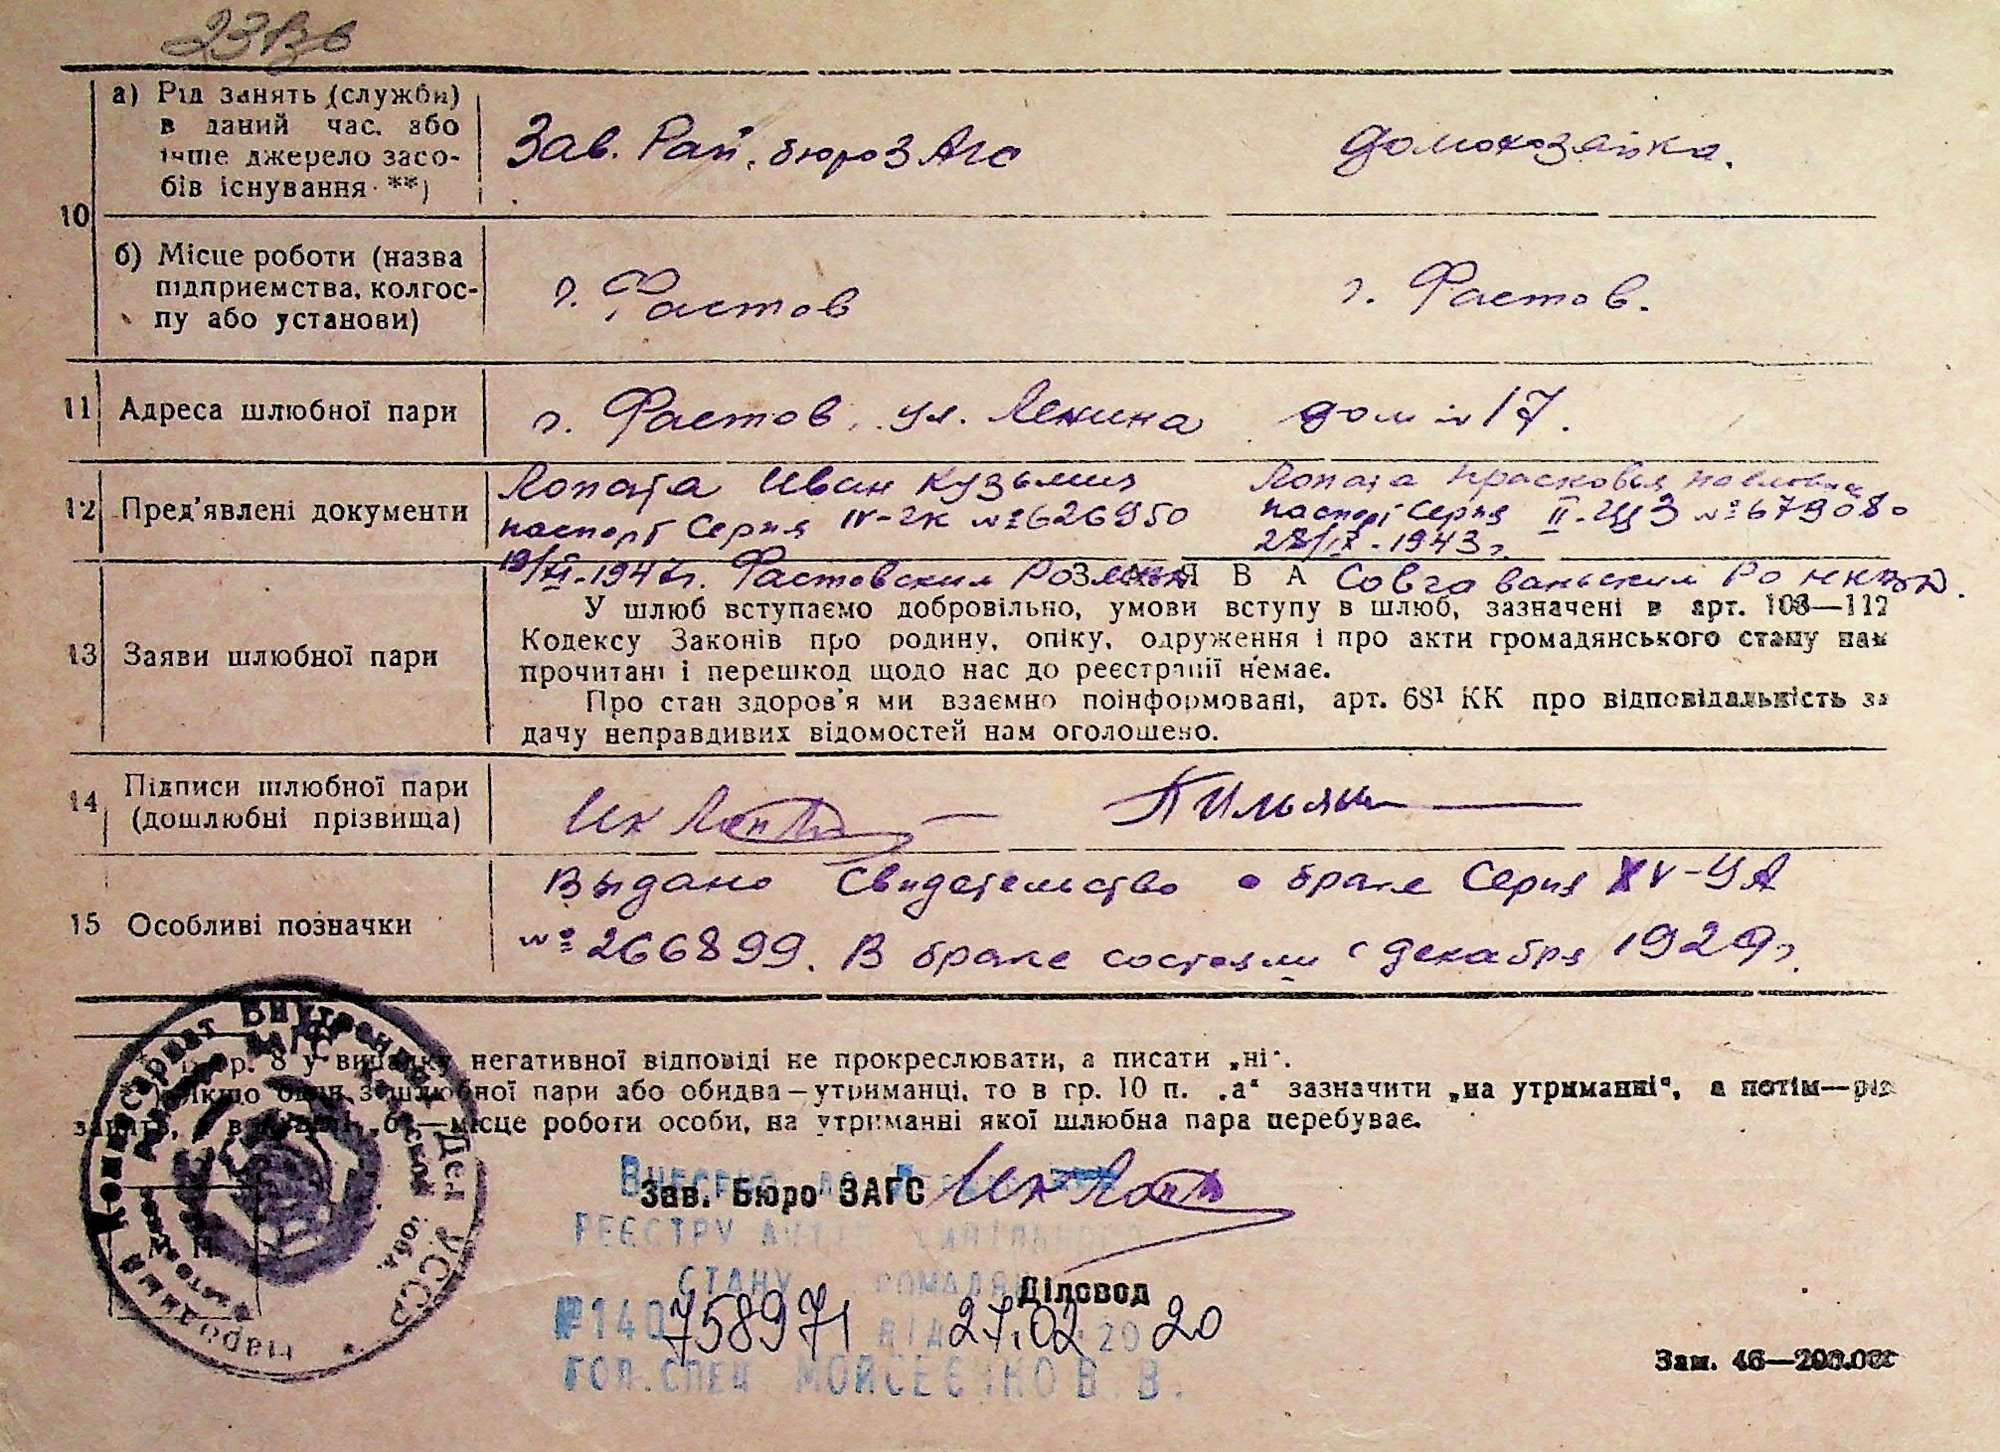 23
а) Рід занять (служби)
в даний час. або
інше джерело засо-
бів існування **)
Зав. Рай. бюро ЗАГС
домохозяйка.
10
б) Місце роботи (назва
підприємства, колгос-
пу або установи)
г. Фастов
г. Фастов.
11 Адреса шлюбної пари
г. Фастов, ул. Ленина дом № 17.
12 Пред'явлені документи
Лопата Иван Кузьмич
паспорт Серия IV-ЧК №626950
19/VI-1947г. Фастовским РОМ
Лопата Прасковья Павловна
паспорт Серия II-ЩЗ №679080
28/IX-1943г.
РО НКВД.
13 Заяви шлюбної пари
ЗАЯВА
У шлюб вступаємо добровільно, умови вступу в шлюб, зазначені в арт. 108—112
Кодексу Законів про родину, опіку, одруження і про акти громадянського стану нам
прочитані і перешкод щодо нас до реєстрації немає.
Про стан здоров'я ми взаємно поінформовані, арт. 68¹ КК про відповідальність за
дачу неправдивих відомостей нам оголошено.
14 Підписи шлюбної пари
(дошлюбні прізвища)
15 Особливі позначки
Выдано Свидетельство о браке Серия XV-УА
№ 266899. В браке состояли с декабря 1929г.
гр. 8 у випадку негативної відповіді не прокреслювати, а писати „ні“.
**) Якщо один з шлюбної пари або обидва—утриманці, то в гр. 10 п. „а“ зазначити „на утриманні“, а потім—рід
занять, в „б“—місце роботи особи, на утриманні якої шлюбна пара перебуває.
Народный Комиссариат Внутренних Дел УССР
М. П.
Зав. Бюро ЗАГС
Внесено до Державного
реєстру актів цивільного
стану громадян
Діловод
№140 758971 від 27.02 2020
Гол.спец Мойсеєнко В.В.
Зам. 46—200.000